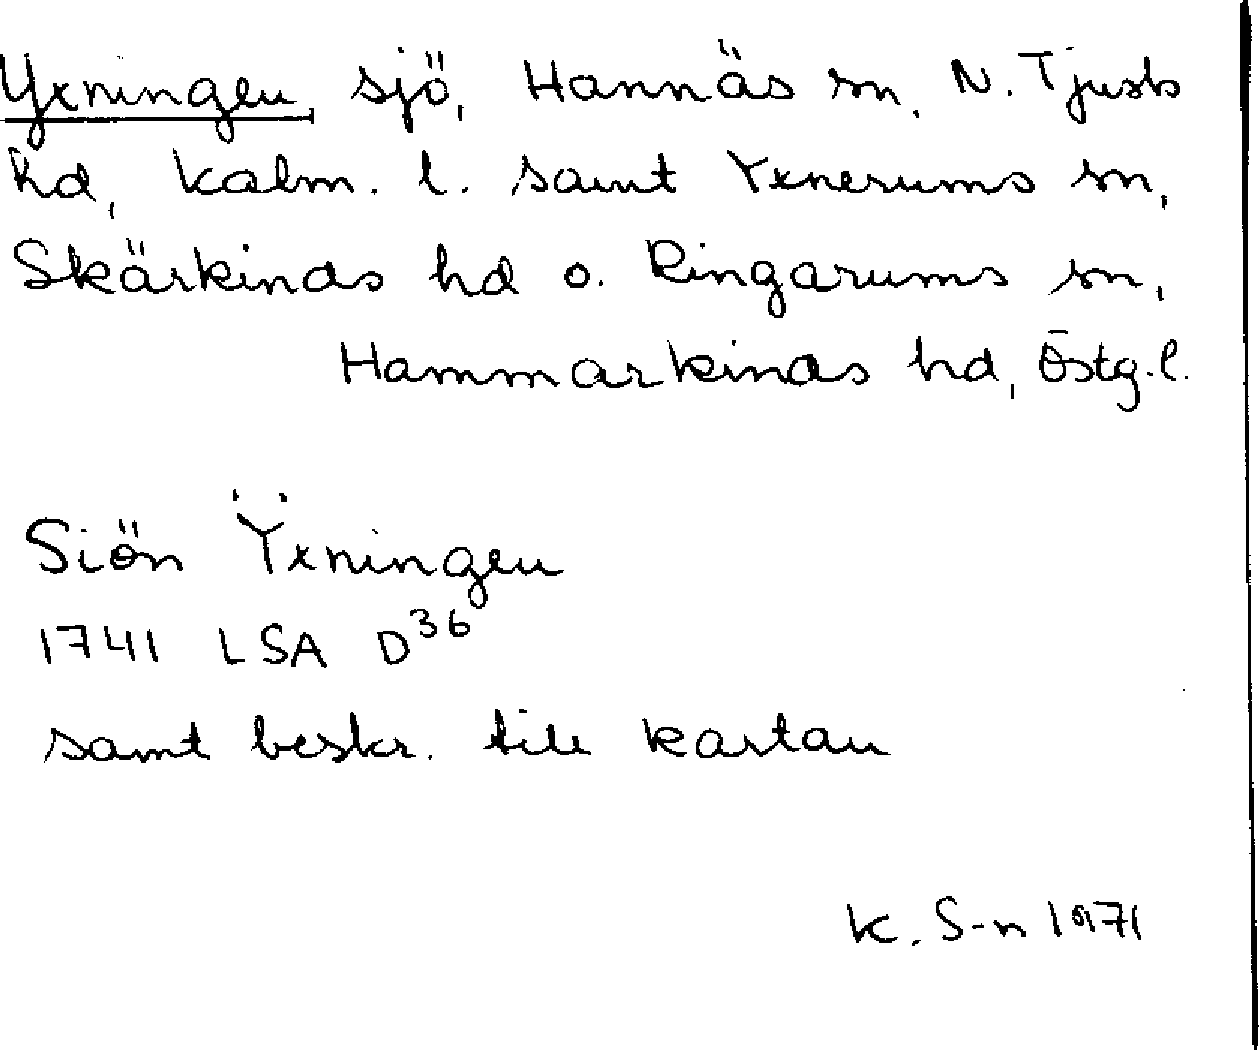 Yxningen, sjö, Hannäs sn, N. Tjusts
hd, Kalm. l. samt Yxnerums sn,
Skärkinds hd o. Ringarums sn,
Hammarkinds hd, Östg.l.
Siön Ÿxningen
1741 LSA D36
samt beskr. till kartan
K. S-n 1971